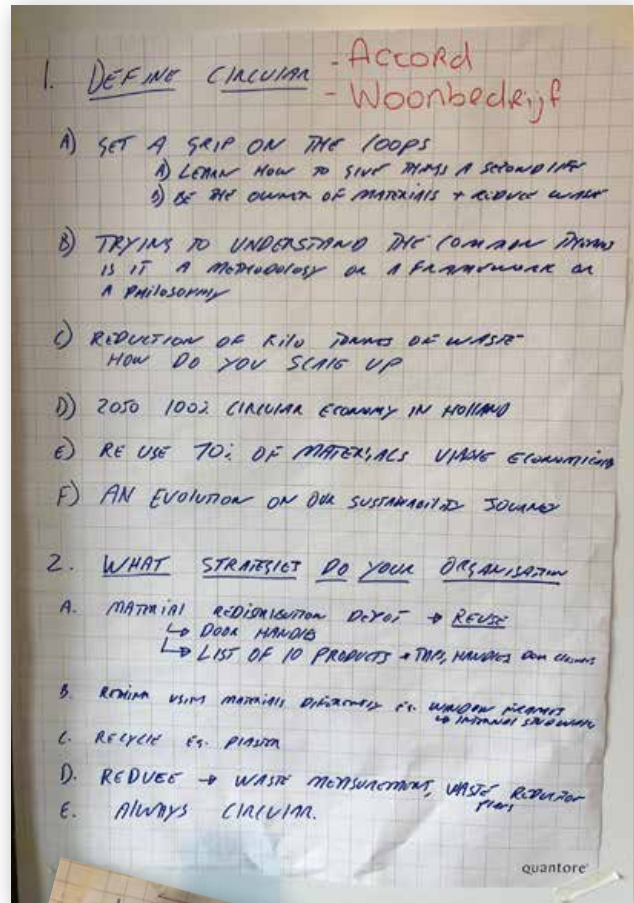 1. DEFINE CIRCULAR
- Accord
- Woonbedrijf
A) GET A GRIP ON THE LOOPS
A) LEARN HOW TO GIVE THINGS A SECOND LIFE
B) BE THE OWNER OF MATERIALS + REDUCE WASTE
B) TRYING TO UNDERSTAND THE COMMON
IS IT A METHODOLOGY OR A FRAMEWORK OR
A PHILOSOPHY
C) REDUCTION OF KILO TONNES OF WASTE
HOW DO YOU SCALE UP
D) 2050 100% CIRCULAR ECONOMY IN HOLLAND
E) RE USE 70% OF MATERIALS
F) AN EVOLUTION ON OUR SUSTAINABILITY JOURNEY
2. WHAT STRATEGIES DO YOUR ORGANISATION
A. MATERIAL REDISTRIBUTION DEPOT → REUSE
↳ DOOR HANDLES
↳ LIST OF 10 PRODUCTS → TAPS, HANDLES DOOR CLOSERS
B. RETHINK USING MATERIALS DIFFERENTLY EG. WINDOW FRAMES
↳ INTERNAL
C. RECYCLE EG. PLASTER
D. REDUCE → WASTE MEASUREMENT, WASTE REDUCTION
PLANS
E. ALWAYS CIRCULAR.
quantore